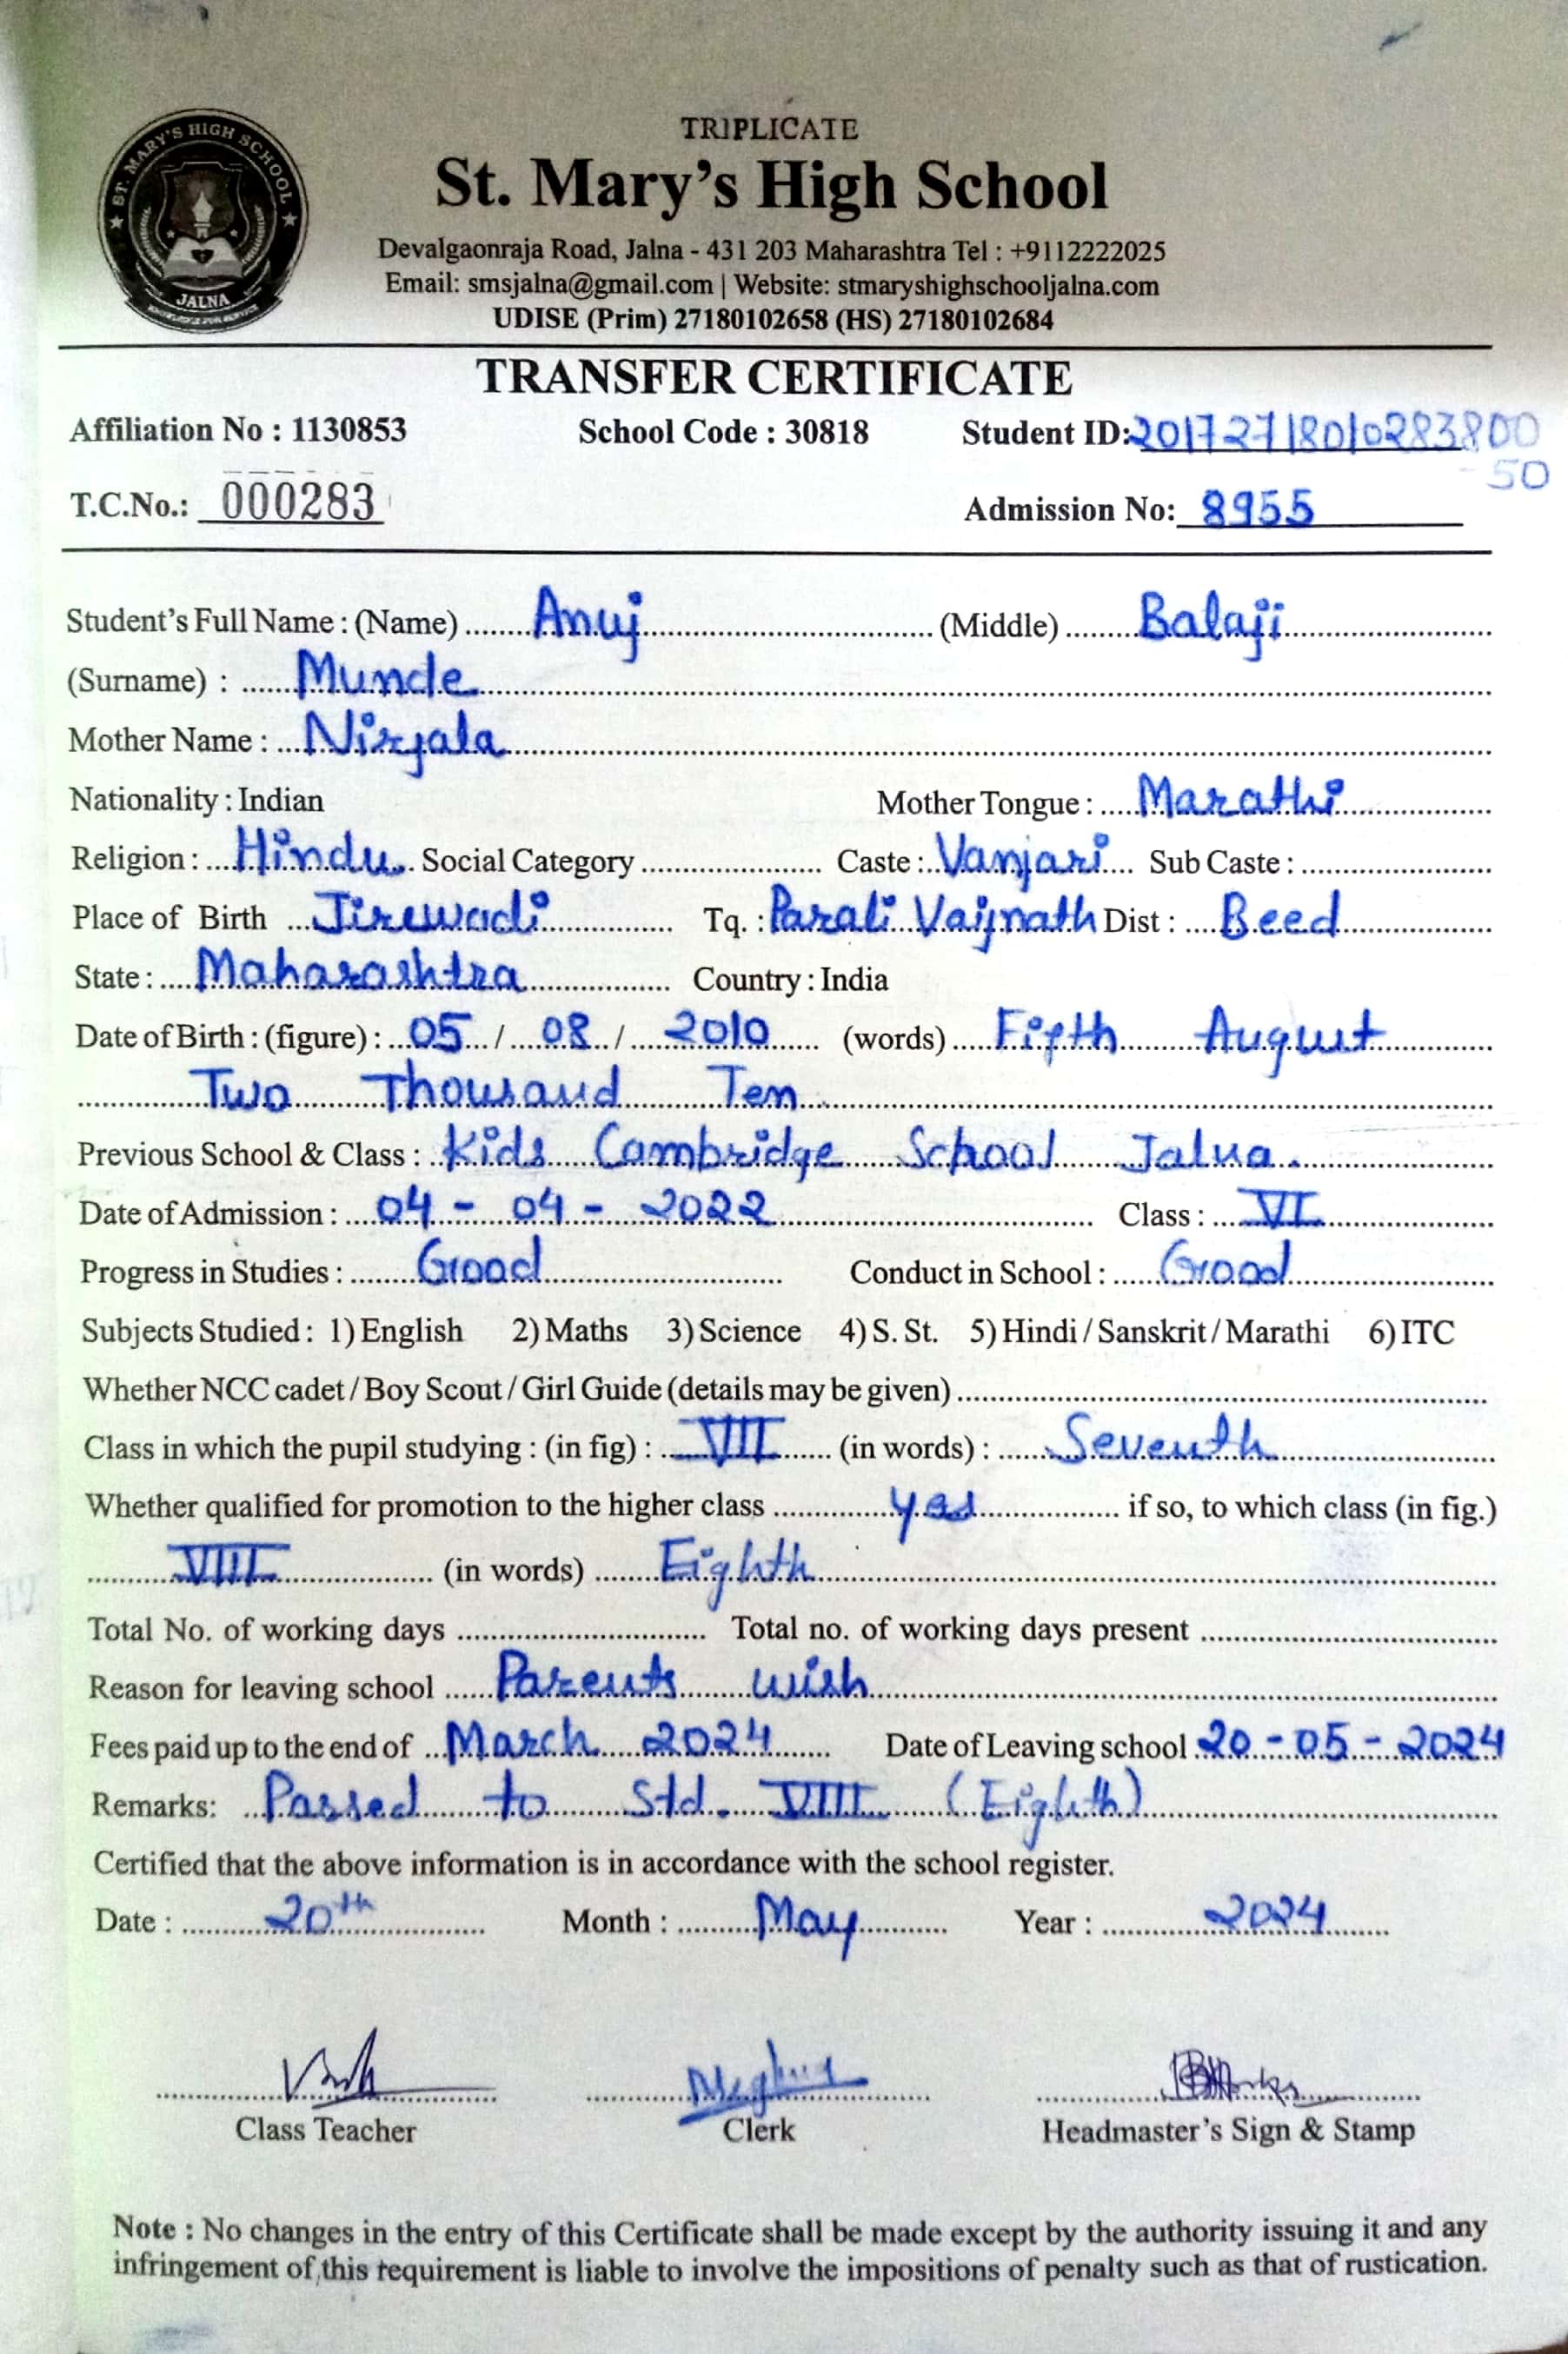 TRIPLICATE
St. Mary's High School
Devalgaonraja Road, Jalna - 431 203 Maharashtra Tel : +9112222025
Email: smsjalna@gmail.com | Website: stmaryshighschooljalna.com
UDISE (Prim) 27180102658 (HS) 27180102684
ST. MARY'S HIGH SCHOOL
JALNA
TRANSFER CERTIFICATE
Affiliation No : 1130853 School Code : 30818 Student ID: 20172718010283800
50
T.C.No.: 000283 Admission No: 8955
Student's Full Name : (Name) Anuj (Middle) Balaji
(Surname) : Munde
Mother Name : Nirjala
Nationality : Indian Mother Tongue : Marathi
Religion : Hindu Social Category Caste : Vanjari Sub Caste :
Place of Birth Jirewadi Tq. : Parali Vaijnath Dist : Beed
State : Maharashtra Country : India
Date of Birth : (figure) : 05 / 08 / 2010 (words) Fifth August
Two Thousand Ten
Previous School & Class : Kids Cambridge School Jalna.
Date of Admission : 04 - 04 - 2022 Class : VI
Progress in Studies : Good Conduct in School : Good
Subjects Studied : 1) English 2) Maths 3) Science 4) S. St. 5) Hindi / Sanskrit / Marathi 6) ITC
Whether NCC cadet / Boy Scout / Girl Guide (details may be given)
Class in which the pupil studying : (in fig) : VII (in words) : Seventh
Whether qualified for promotion to the higher class yes if so, to which class (in fig.)
VIII (in words) Eighth
Total No. of working days Total no. of working days present
Reason for leaving school Parents wish
Fees paid up to the end of March 2024 Date of Leaving school 20 - 05 - 2024
Remarks: Passed to Std. VIII (Eighth)
Certified that the above information is in accordance with the school register.
Date : 20th Month : May Year : 2024
Class Teacher Clerk Headmaster's Sign & Stamp
Note : No changes in the entry of this Certificate shall be made except by the authority issuing it and any
infringement of this requirement is liable to involve the impositions of penalty such as that of rustication.